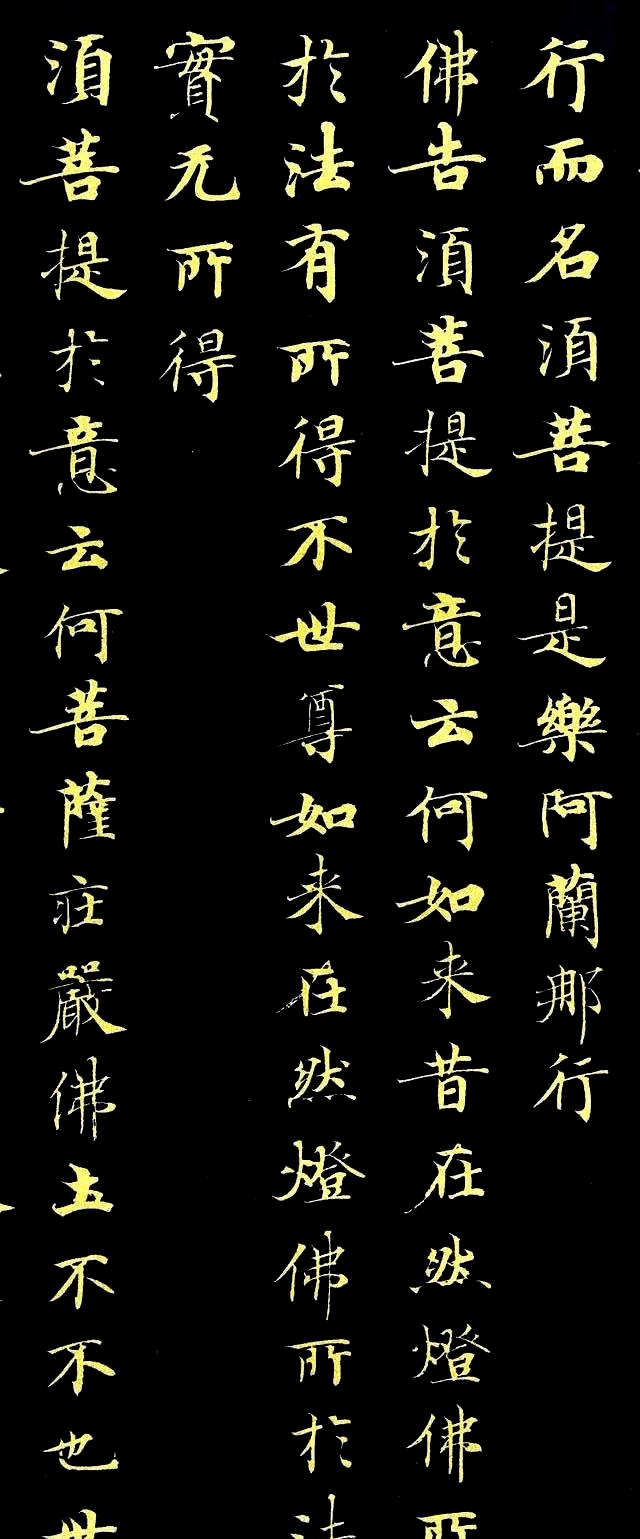 行而名須菩提是樂阿蘭那行
佛告須菩提於意云何如来昔在然燈佛所
於法有所得不世尊如来在然燈佛所於法
實无所得
須菩提於意云何菩薩莊嚴佛土不不也世